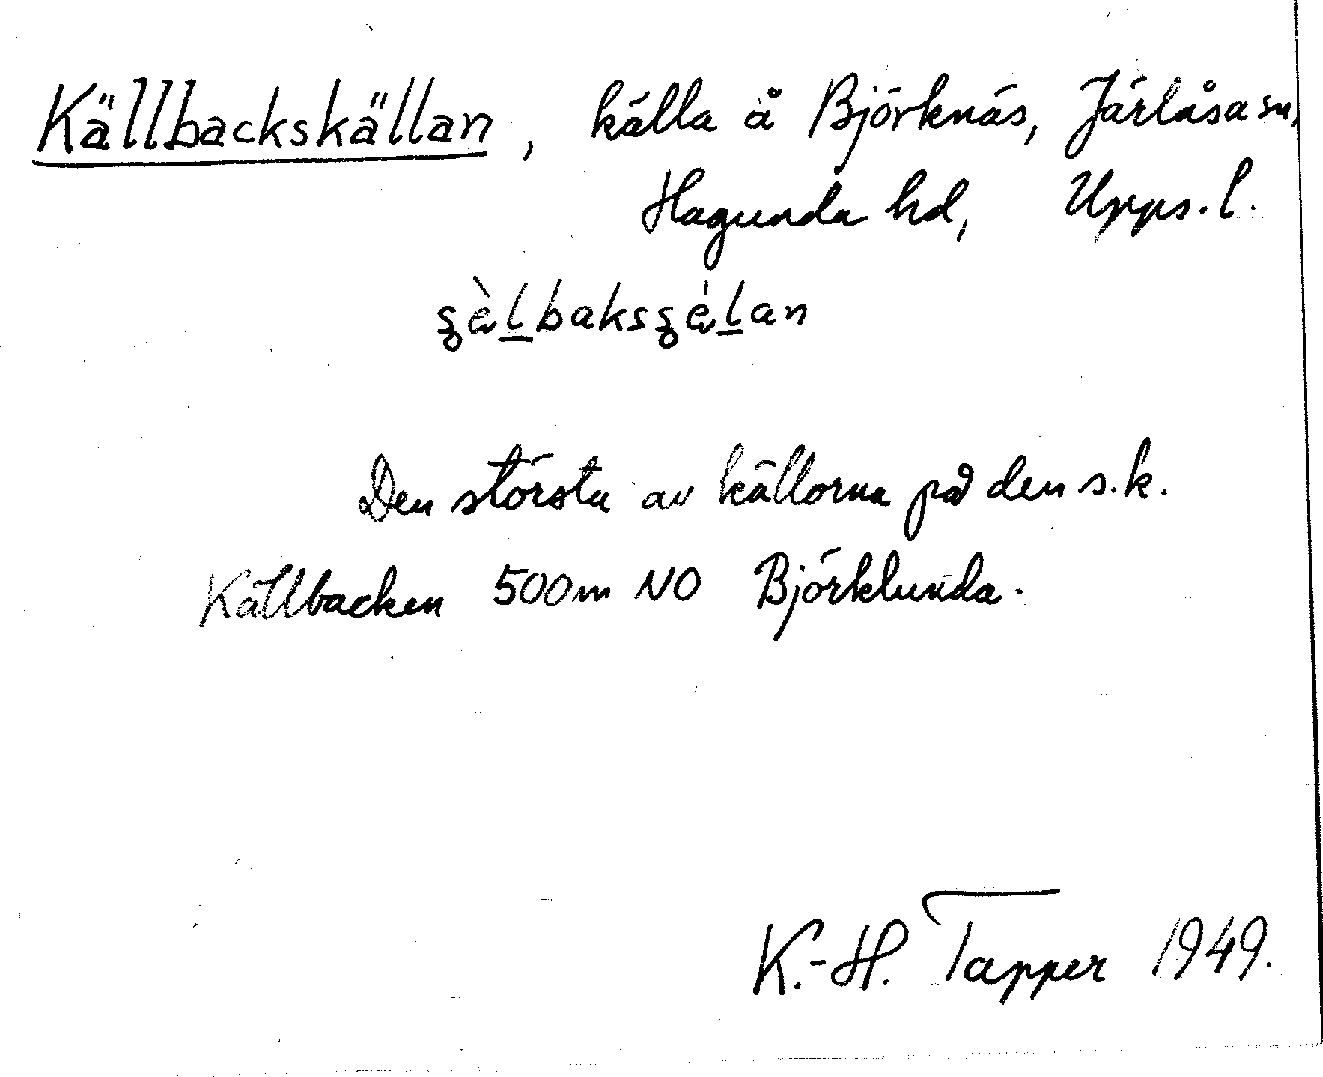 Källbackskällan, källa å Björknäs, Järlåsa sn,
Hagunda hd, Upps. l.
Den största av källorna på den s.k.
Källbacken 500m NO Björklunda.
K.-H. Tapper 1949.